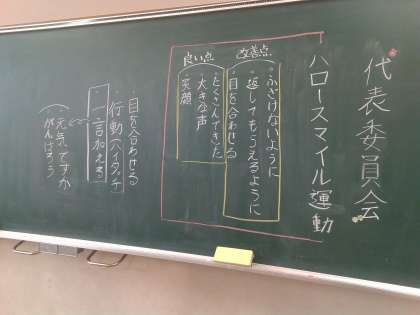 代表委員会
ハロースマイル運動
改善点
・ふざけないように
・返してもらえるように
・目を合わせる
良い点
・たくさんできた
・大きな声
・笑顔
・目を合わせる
・行動(ハイタッチ)
・一言加える
元気ですか
がんばろう